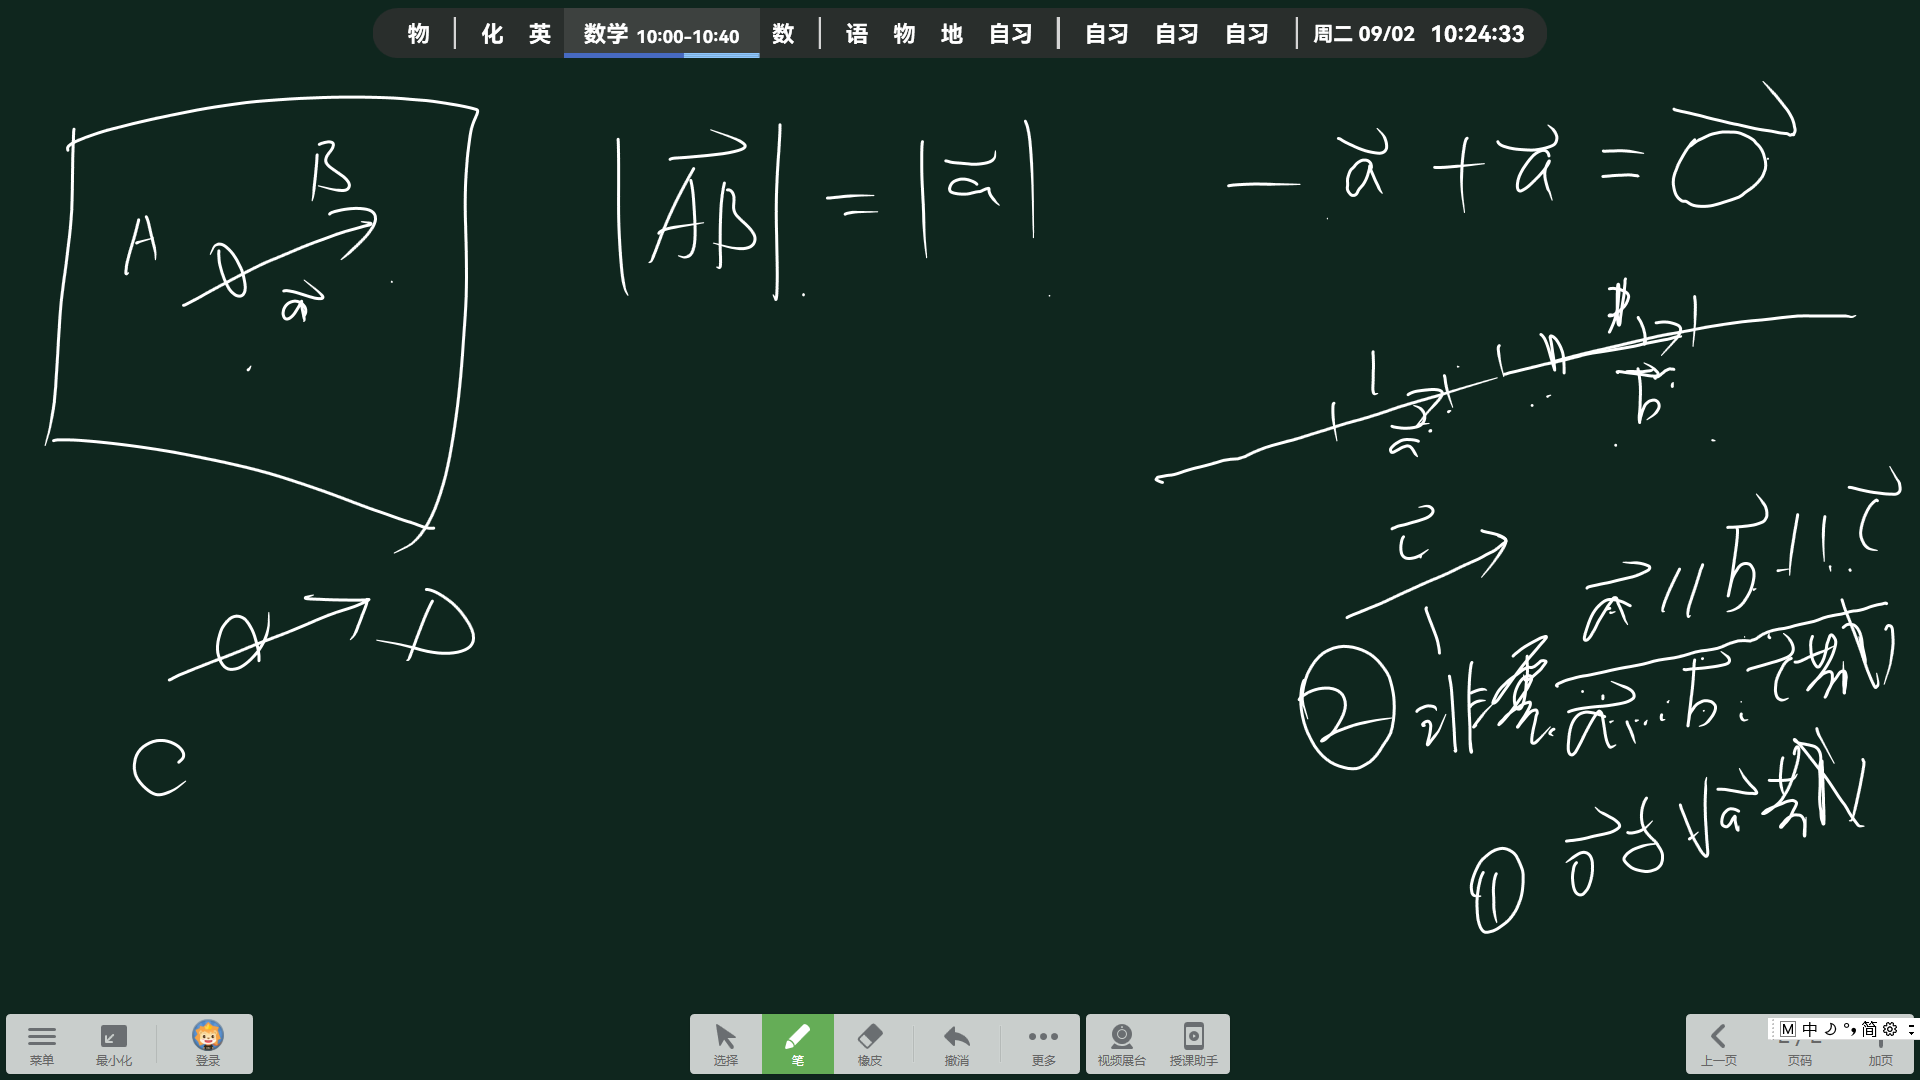 物 | 化 英 数学 10:00-10:40 数 | 语 物 地 自习 | 自习 自习 自习 | 周二 09/02 10:24:33
A B
a⃗
|AB⃗| = |a⃗|
- a⃗ + a⃗ = 0⃗
a⃗ b⃗
c⃗
a⃗ // b⃗ // c⃗
D
C
② 非零 a⃗ b⃗ c⃗ 共线
① 0⃗与∀a⃗共线
菜单 最小化 登录
选择 笔 橡皮 撤消 更多 视频展台 授课助手
M 中 简
上一页 页码 加页